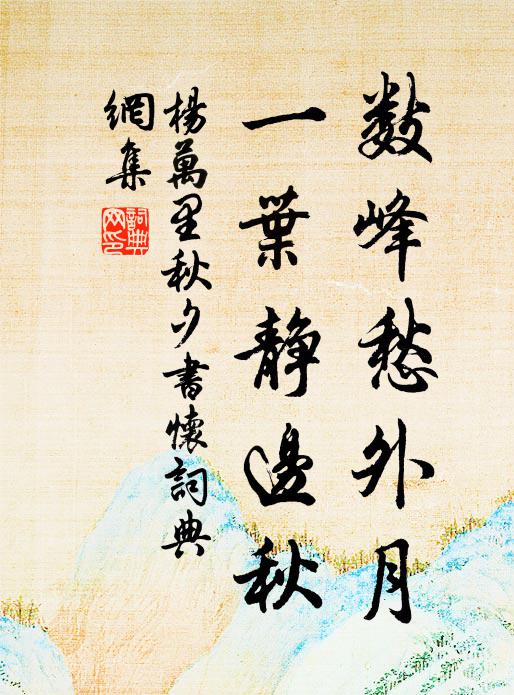 数峰愁外月
一葉静邊秋
楊萬里秋夕書懷詞典
網集
詞典
网印